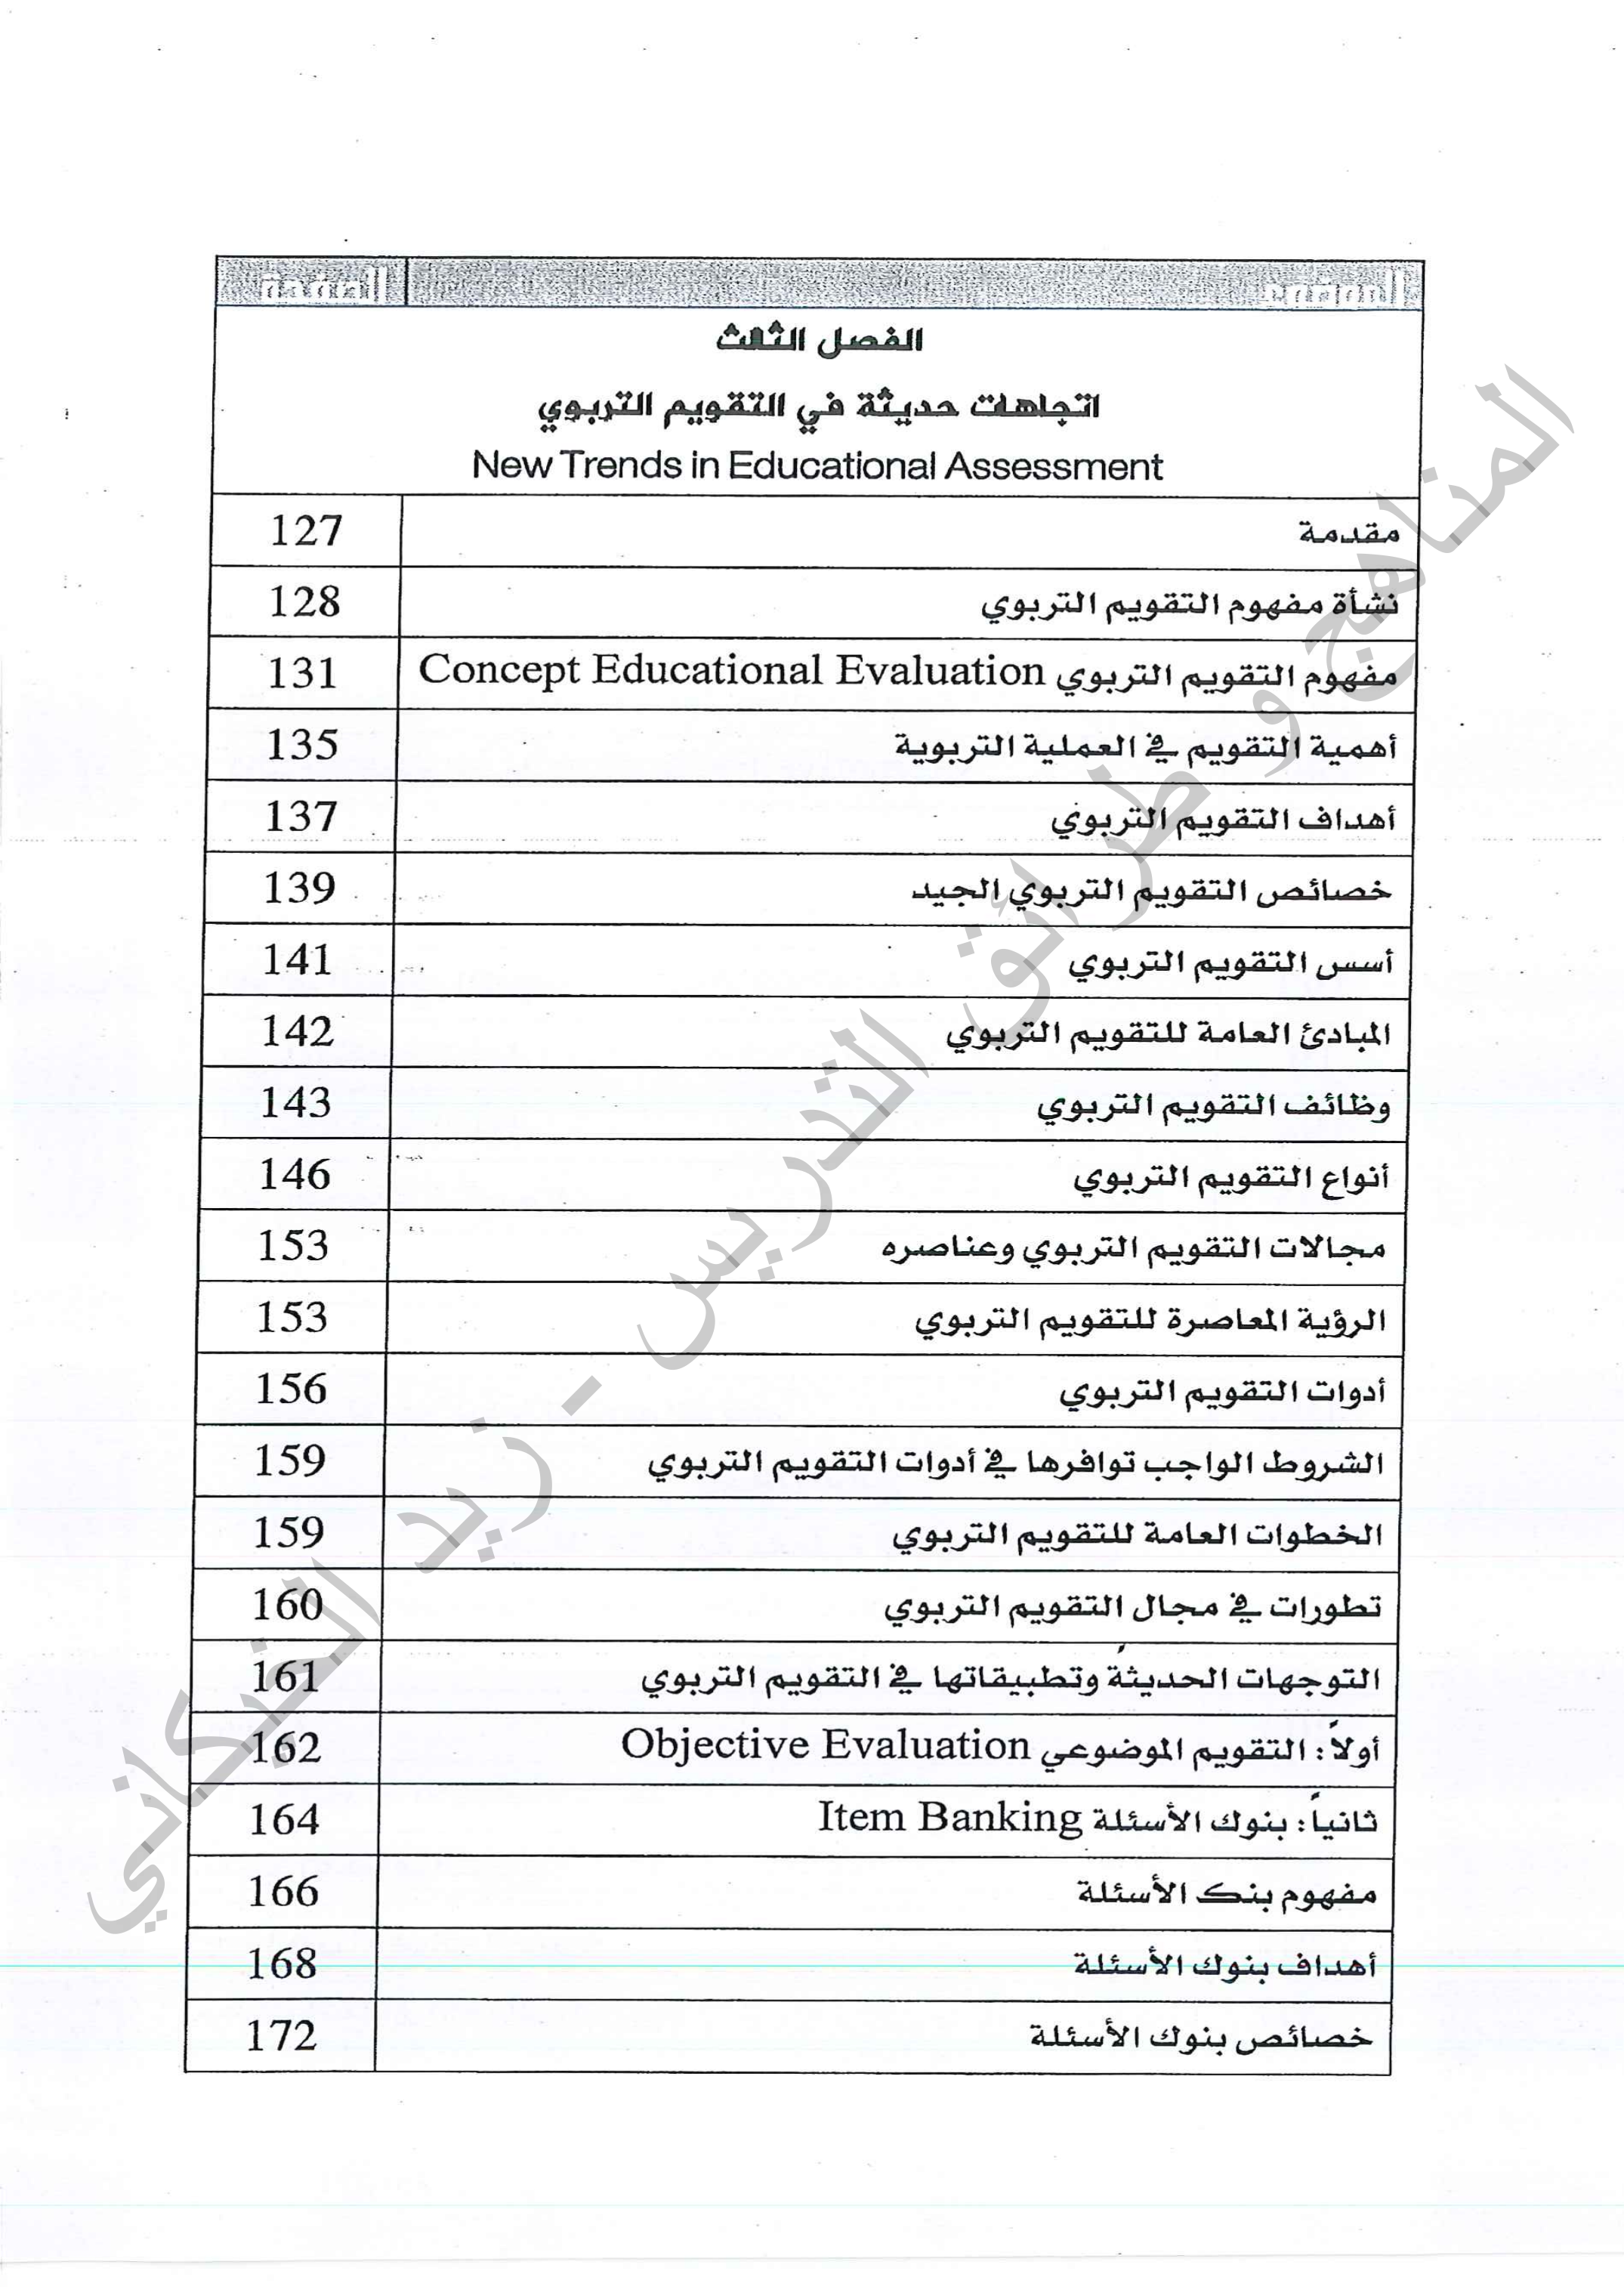 الموضوع الصفحة
الفصل الثالث
اتجاهات حديثة في التقويم التربوي
New Trends in Educational Assessment
مقدمة 127
نشأة مفهوم التقويم التربوي 128
مفهوم التقويم التربوي Concept Educational Evaluation 131
أهمية التقويم في العملية التربوية 135
أهداف التقويم التربوي 137
خصائص التقويم التربوي الجيد 139
أسس التقويم التربوي 141
المبادئ العامة للتقويم التربوي 142
وظائف التقويم التربوي 143
أنواع التقويم التربوي 146
مجالات التقويم التربوي وعناصره 153
الرؤية المعاصرة للتقويم التربوي 153
أدوات التقويم التربوي 156
الشروط الواجب توافرها في أدوات التقويم التربوي 159
الخطوات العامة للتقويم التربوي 159
تطورات في مجال التقويم التربوي 160
التوجهات الحديثة وتطبيقاتها في التقويم التربوي 161
أولاً: التقويم الموضوعي Objective Evaluation 162
ثانياً: بنوك الأسئلة Item Banking 164
مفهوم بنك الأسئلة 166
أهداف بنوك الأسئلة 168
خصائص بنوك الأسئلة 172
المناهج و طرائق التدريس - زيد الخيكاني